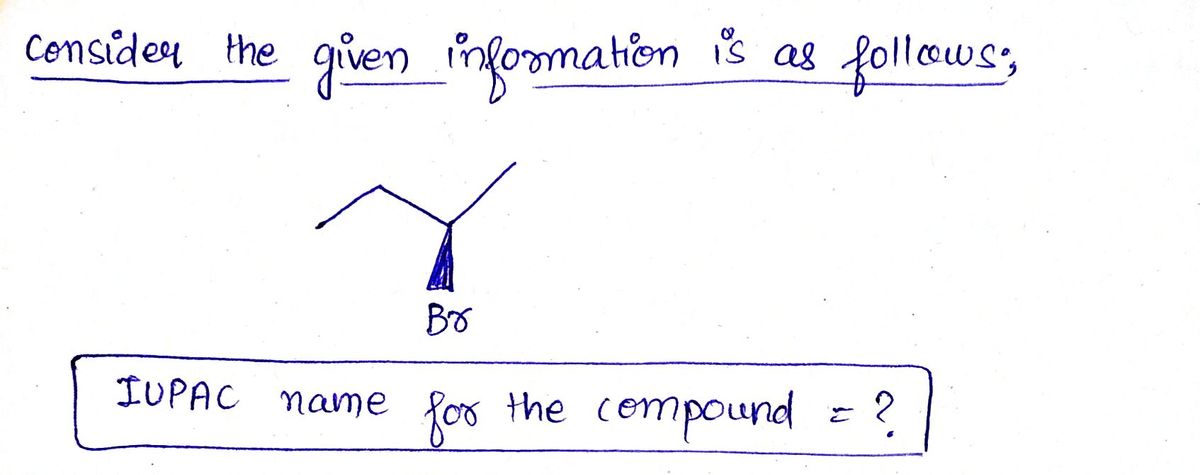 Consider the given information is as follows;
Br
IUPAC name for the compound = ?